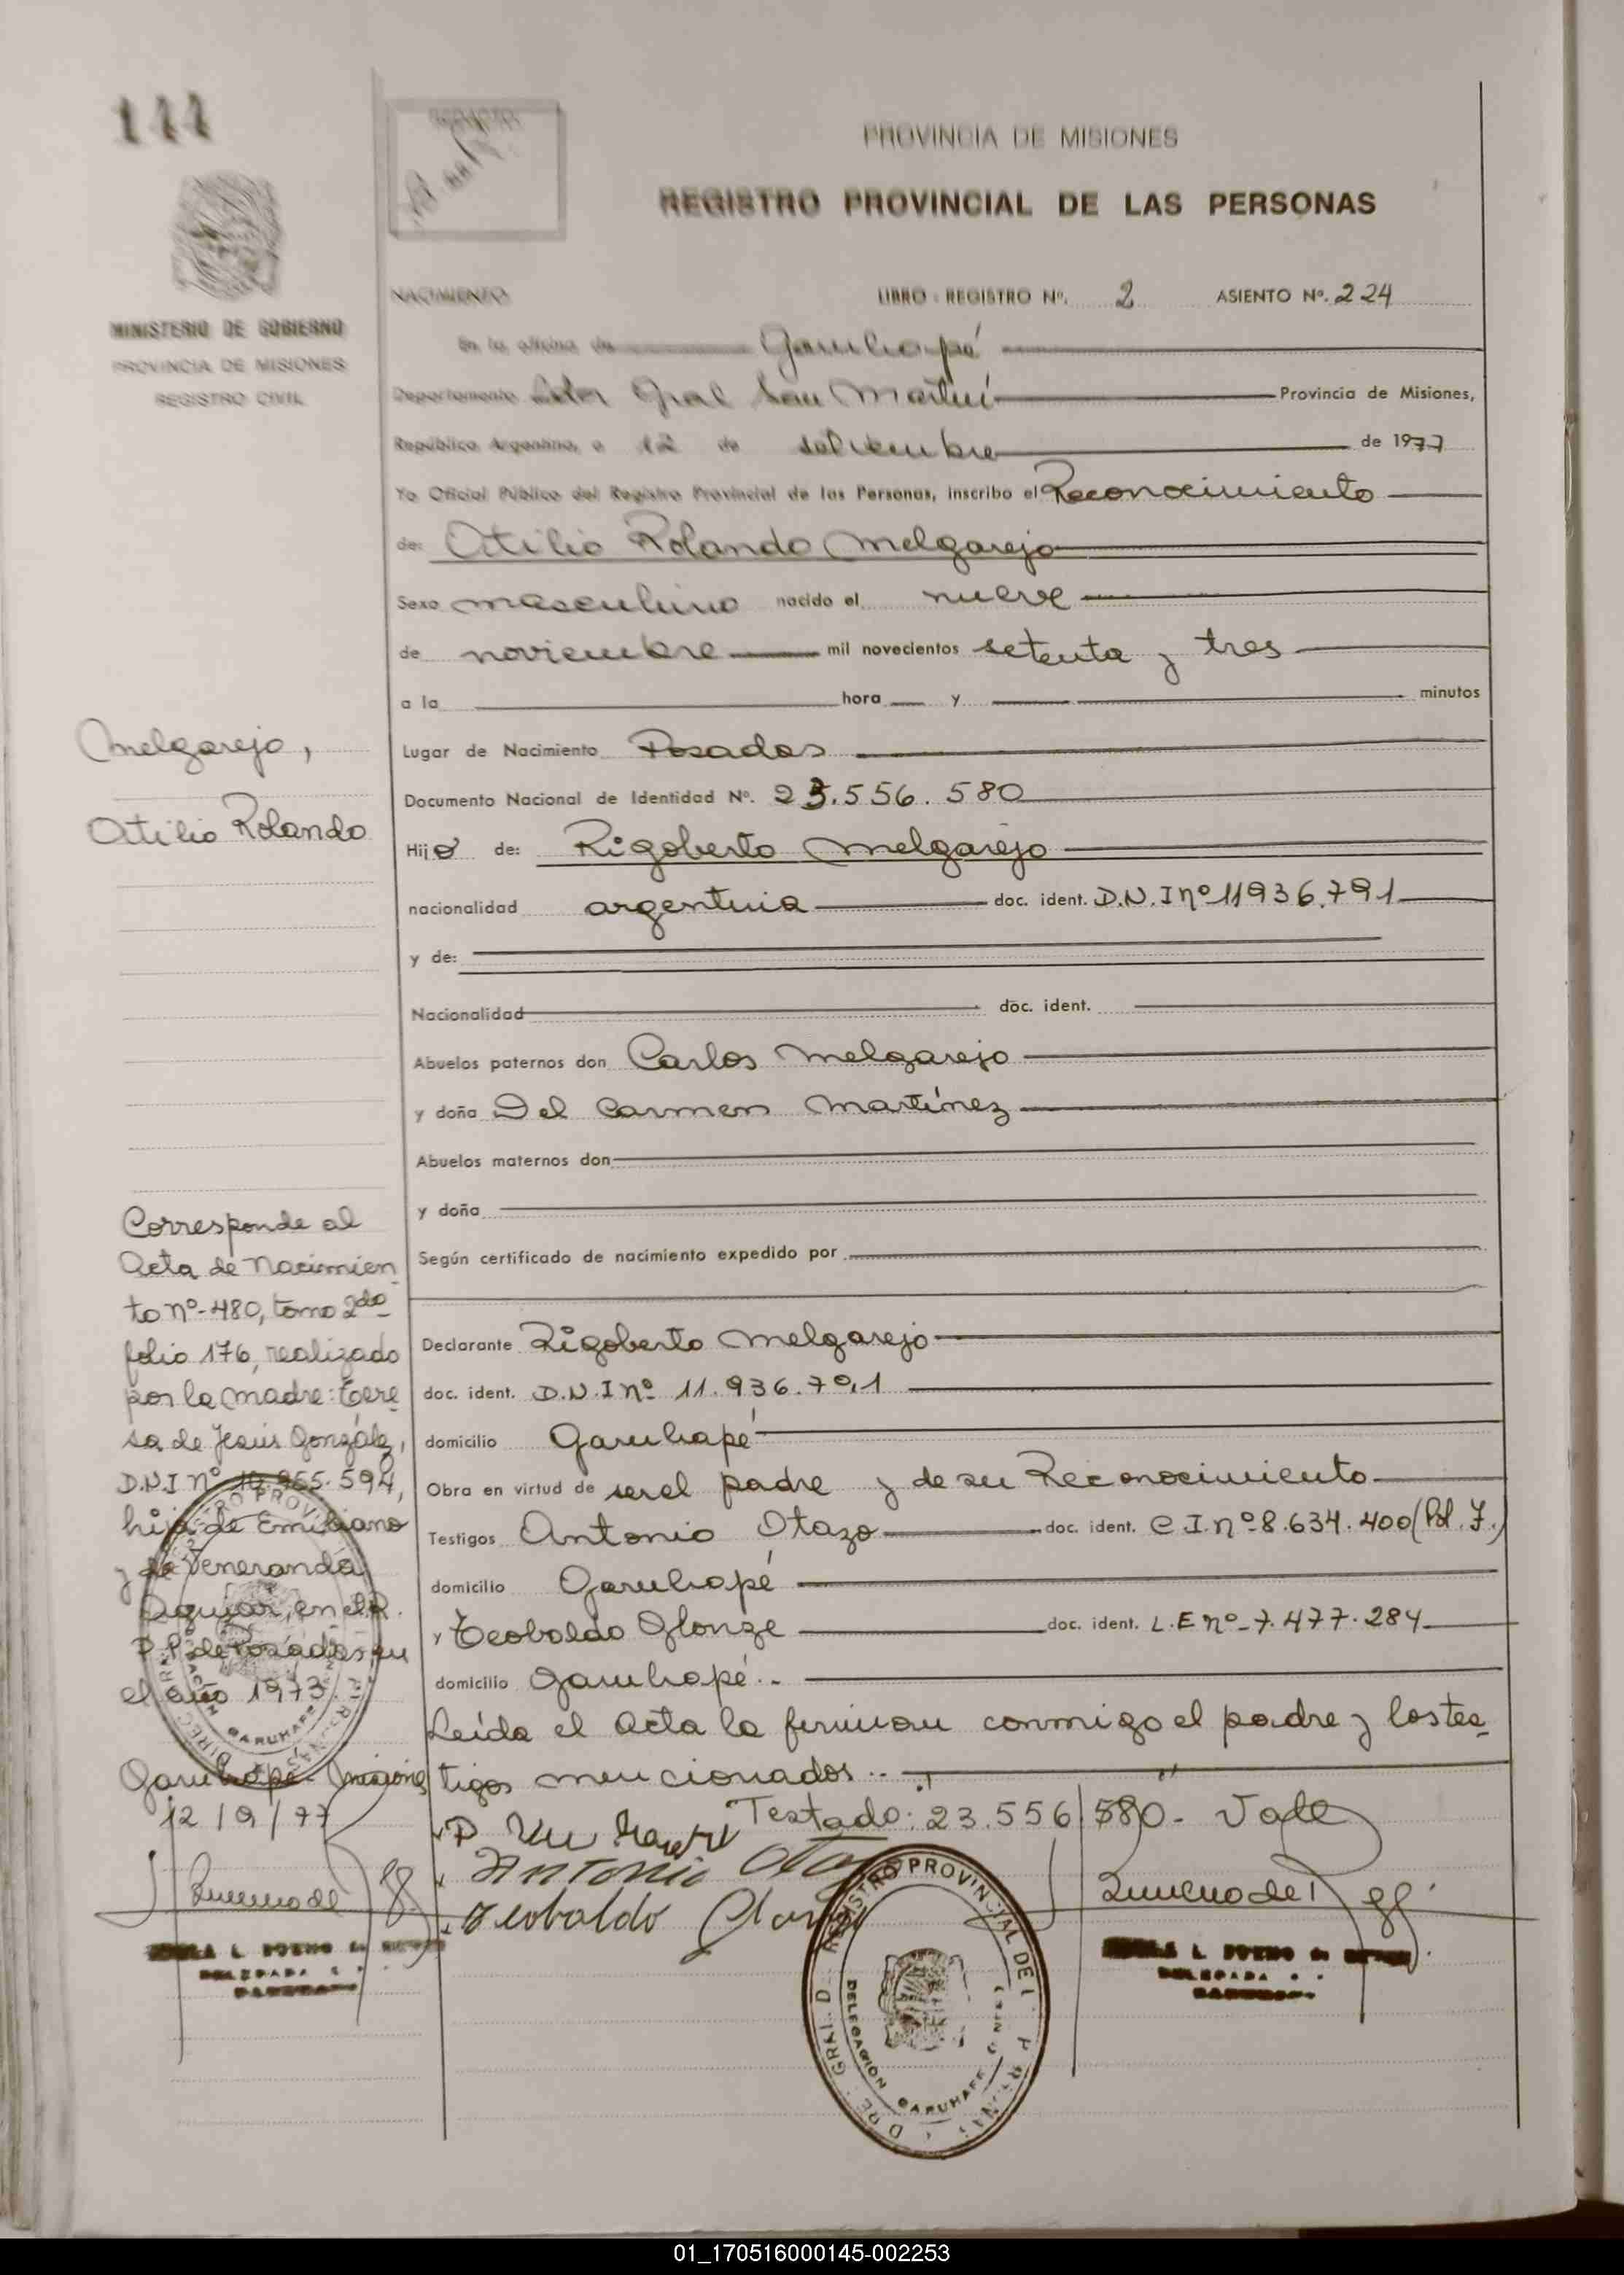 144
PROVINCIA DE MISIONES
REGISTRO PROVINCIAL DE LAS PERSONAS
MINISTERIO DE GOBIERNO
PROVINCIA DE MISIONES
REGISTRO CIVIL
NACIMIENTO LIBRO - REGISTRO Nº. 2 ASIENTO Nº. 224
En la oficina de Garuhapé
Departamento Lder Gral San Martín Provincia de Misiones,
República Argentina, a 12 de setiembre de 1977
Yo Oficial Público del Registro Provincial de las Personas, inscribo el Reconocimiento
de: Otilio Rolando Melgarejo
Sexo masculino nacido el nueve
de noviembre mil novecientos setenta y tres
a la hora y minutos
Lugar de Nacimiento Posadas
Documento Nacional de Identidad Nº. 23.556.580
Hijo de: Rigoberto Melgarejo
nacionalidad argentina doc. ident. D.N.I nº 11936.791
y de:
Nacionalidad doc. ident.
Abuelos paternos don Carlos Melgarejo
y doña Del Carmen Martínez
Abuelos maternos don
y doña
Según certificado de nacimiento expedido por
Declarante Rigoberto Melgarejo
doc. ident. D.N.I nº 11.936.791
domicilio Garuhapé
Obra en virtud de ser el padre y de su Reconocimiento
Testigos Antonio Otazo doc. ident. C.I. nº 8.634.400 (Pol. F.)
domicilio Garuhapé
y Teobaldo Glonze doc. ident. L.E nº 7.477.284
domicilio Garuhapé..
Leída el Acta la firman conmigo el padre y los tes-
tigos mencionados..
Testado: 23.556.580- Vale
Antonio Otazo
Teobaldo
Melgarejo,
Otilio Rolando
Corresponde al
Acta de Nacimien-
to nº 480, tomo 2do
folio 176, realizado
por la madre: Tere-
sa de Jesús González,
D.N.I nº 10.955.594,
hija de Emiliano
y de Veneranda
Aguiar, en el R.
P.P. de Posadas, en
el año 1973.
Garuhapé Misiones
12/9/77
REGISTRO PROVINCIAL DE
DELEGACIÓN
GARUHAPE
DELEGADA
DELEGADA
01_170516000145-002253